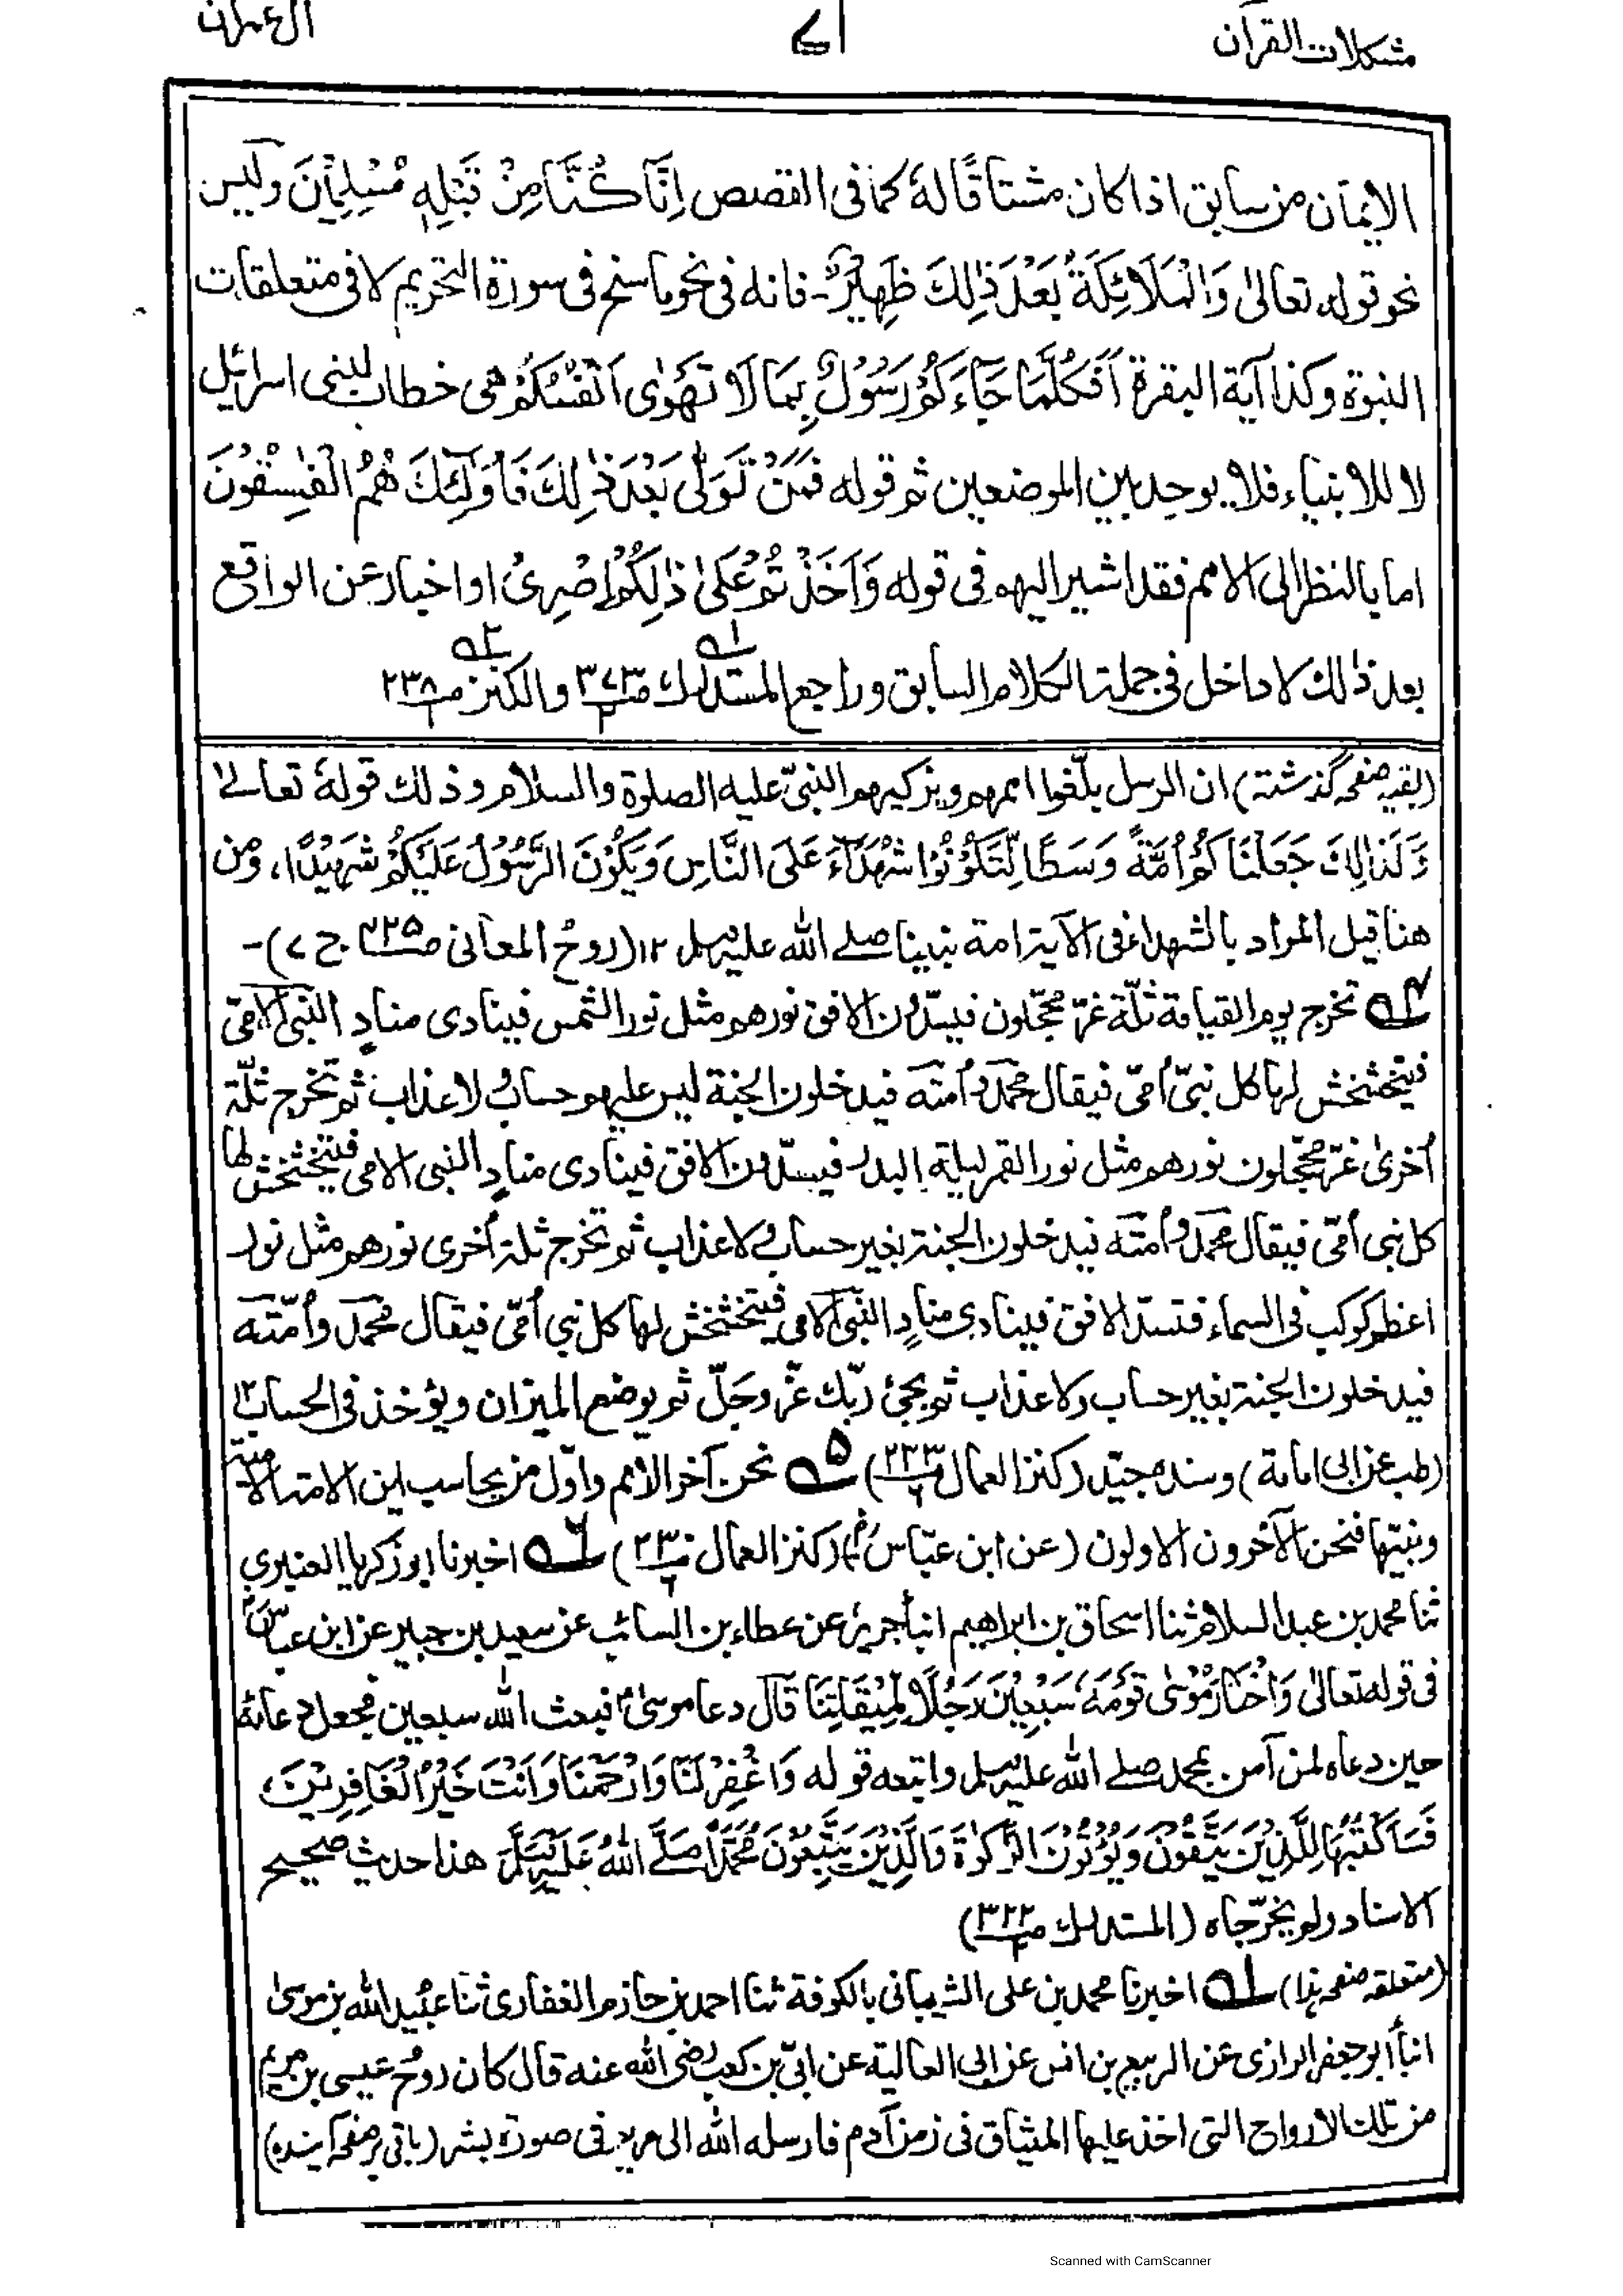 مشکلات القرآن
اٰل عمران
الایمان من سابق اذا کان مشتاقًا لہٗ کما فی القصص اِنَّا کُنَّا مِنْ قَبْلِهٖ مُسْلِمِیْنَ ولیس
نحو قوله تعالیٰ وَالْمَلَائِکَةُ بَعْدَ ذٰلِكَ ظَهِیْرٌ۔ فانه فی نحو ما سنح فی سورة التحریم لا فی متعلقات
النبوة وکذا آیة البقرة اَفَکُلَّمَا جَآءَکُمْ رَسُوْلٌ بِمَا لَا تَهْوٰی اَنْفُسُکُمْ هی خطاب لبنی اسرائیل
لا للانبیاء فلا یوحد بین الموضعین ثم قوله فَمَنْ تَوَلّٰی بَعْدَ ذٰلِكَ فَاُولٰٓئِكَ هُمُ الْفٰسِقُوْنَ
اما بالنظر الی الامم فقد اشیر الیهم فی قوله وَاَخَذْتُمْ عَلیٰ ذٰلِکُمْ اِصْرِیْ او اخبار عن الواقع
بعد ذٰلك لا داخل فی جملة الکلام السابق وراجع المستدرك ص۳۷۳ ۲ والکنز ص۲۳۸ ۶
(بقیہ صفحہ گذشتہ) ان الرسل بلّغوا اممهم ویزکیهم النبیّ علیه الصلوة والسلام وذلك قولهٗ تعالےٰ
وَکَذَالِكَ جَعَلْنَا کُمْ اُمَّةً وَسَطًا لِّتَکُوْنُوْا شُهَدَآءَ عَلَی النَّاسِ وَیَکُوْنَ الرَّسُوْلُ عَلَیْکُمْ شَهِیْدًا، ومن
هنا قیل المراد بالشهداء فی الآیة امة نبینا صلے الله علیه وسلم ۱۲ (روحُ المعانی ج ۷)۔
۴ تخرج یوم القیامة ثلّة غرّ مُحجّلون فیسدّون الافق نورهم مثل نور الشمس فینادی منادٍ النبی الامّی
فیتخشخش لها کل نبیّ اُمّی فیقال محمدٌ واُمتّه فیدخلون الجنة لیس علیهم حساب ولا عذاب ثم تخرج ثلّة
اُخریٰ غرّ مُحجّلون نورهم مثل نور القمر لیلة البدر فیسدّون الافق فینادی منادٍ النبی الامی فیتخشخش لها
کل نبی اُمّی فیقال محمدٌ واُمتّه فیدخلون الجنة بغیر حساب ولا عذاب ثم تخرج ثلة اُخری نورهم مثل نور
اعظم کوکب فی السماء فتسدّ الافق فینادی منادٍ النبی الامی فیتخشخش لها کل نبی اُمّی فیقال محمدٌ واُمّته
فیدخلون الجنة بغیر حساب ولا عذاب ثم یجیٔ ربّك عزّ وجلّ ثم یوضع المیزان ویؤخذ فی الحساب ۱۲
(طب عن ابی امامة) وسنده جیّد (کنز العمال ص۲۳۳ ۶) ۵ نحن آخر الامم واوّل من یحاسب این الامة الامیّة
ونبیّها فنحن الآخرون الاولون (عن ابن عبّاس) (کنز العمال ص۲۳۰ ۶) ۶ اخبرنا ابو زکریا العنبری
ثنا محمد بن عبد السلام ثنا اسحاق بن ابراهیم انبأ جریر عن عطاء بن السائب عن سعید بن جبیر عن ابن عباس
فی قوله تعالیٰ وَاخْتَارَ مُوْسٰی قَوْمَهٗ سَبْعِیْنَ رَجُلًا لِّمِیْقَاتِنَا قَالَ دعا موسیٰؑ فبعث الله سبعین فجعل دعائه
حین دعاه لمن آمن بمحمد صلے الله علیه وسلم واتبعه قوله وَاغْفِرْ لَنَا وَارْحَمْنَا وَاَنْتَ خَیْرُ الْغَافِرِیْنَ،
فَسَاَکْتُبُهَا لِلَّذِیْنَ یَتَّقُوْنَ وَیُؤْتُوْنَ الزَّکوٰةَ وَالَّذِیْنَ یَتَّبِعُوْنَ مُحَمَّدًا صَلَّے اللهُ عَلَیْهِ وَسَلَّمَ هذا حدیث صحیح
الاسناد ولم یخرّجاه (المستدرك ص۳۲۲ ۲)
(متعلقہ صفحہ ہٰذا) ۱ اخبرنا محمد بن علی الشیبانی بالکوفة ثنا احمد بن حازم الغفاری ثنا عبید الله بن موسیٰ
انبأ ابو جعفر الرازی عن الربیع بن انس عن ابی العالیة عن ابیّ بن کعب رضی الله عنه قال کان روحُ عیسی بن مریم
من تلك الارواح التی اخذ علیها المیثاق فی زمن آدم فارسله الله الی مریم فی صورة بشر (باقی بر صفحہ آیندہ)
Scanned with CamScanner